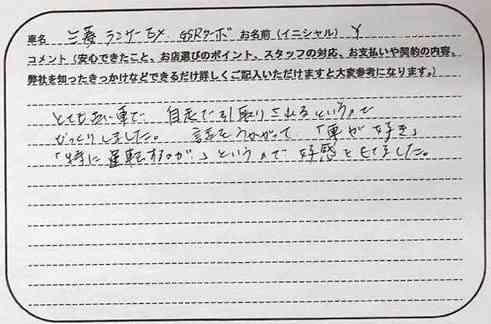 車名 三菱 ランサーEX GSRターボ お名前（イニシャル） Y
コメント（安心できたこと、お店選びのポイント、スタッフの対応、お支払いや契約の内容、
弊社を知ったきっかけなどできるだけ詳しくご記入いただけますと大変参考になります。）
とても古い車で、自走で引取りされるというので
びっくりしました。 話をうかがって、「車が好き」
「特に運転するのが」というので好感をもてました。